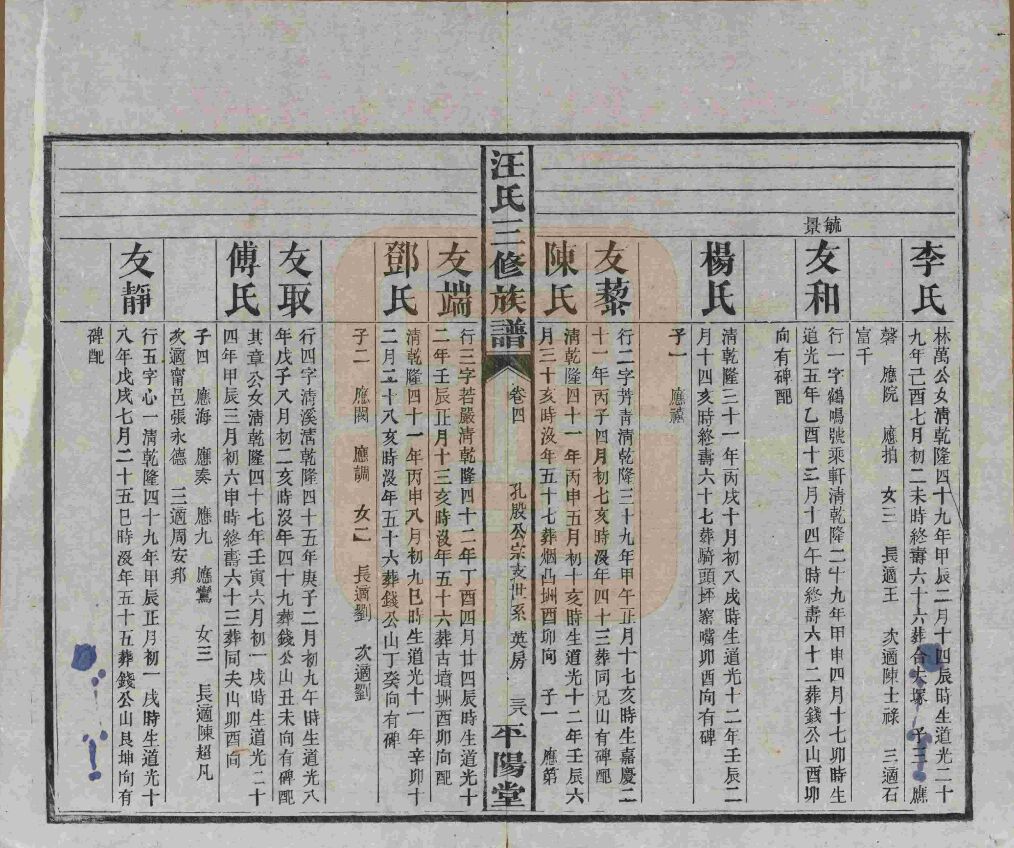 李氏
林萬公女清乾隆四十九年甲辰二月十四辰時生道光二十
九年己酉七月初二未時終壽六十六葬合大塚 子三 應
馨 應院 應拍 女三 長適王 次適陳士祿 三適石
富千
毓
景
友和
行一字鶴鳴號乘軒清乾隆二十九年甲申四月十七卯時生
道光五年乙酉十二月十四午時終壽六十二葬錢公山酉卯
向有碑配
楊氏
清乾隆三十一年丙戌十月初八戌時生道光十二年壬辰二
月十四亥時終壽六十七葬騎頭坏窑嘴卯酉向有碑
子一 應禧
友藜
行二字芳靑清乾隆三十九年甲午正月十七亥時生嘉慶二
十一年丙子四月初七亥時沒年四十三葬同兄山有碑配
陳氏
清乾隆四十一年丙申五月初十亥時生道光十二年壬辰六
月三十亥時沒年五十七葬烟凸坤酉卯向 子一 應第
汪氏三修族譜
卷四
孔殷公宗支世系 英房
三八
平陽堂
友端
行三字若嚴清乾隆四十二年丁酉四月廿四辰時生道光十
二年壬辰正月十三亥時沒年五十六葬古墳坤酉卯向配
鄧氏
清乾隆四十一年丙申八月初九巳時生道光十一年辛卯十
二月二十八亥時沒年五十六葬錢公山丁癸向有碑
子二 應閣 應調 女二 長適劉 次適劉
友取
行四字清溪清乾隆四十五年庚子二月初九午時生道光八
年戊子八月初二亥時沒年四十九葬錢公山丑未向有碑配
傅氏
其章公女清乾隆四十七年壬寅六月初一戌時生道光二十
四年甲辰三月初六申時終壽六十三葬同夫山卯酉向
子四 應海 應奏 應九 應鸞 女三 長適陳超凡
次適甯邑張永德 三適周安邦
友靜
行五字心一清乾隆四十九年甲辰正月初一戌時生道光十
八年戊戌七月二十五巳時沒年五十五葬錢公山艮坤向有
碑配